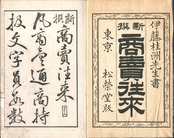 伊藤桂洲先生書
新撰
商賣往來
東京 松榮堂版
新撰
商賣往來
凡商賣通商持
扱文字員數